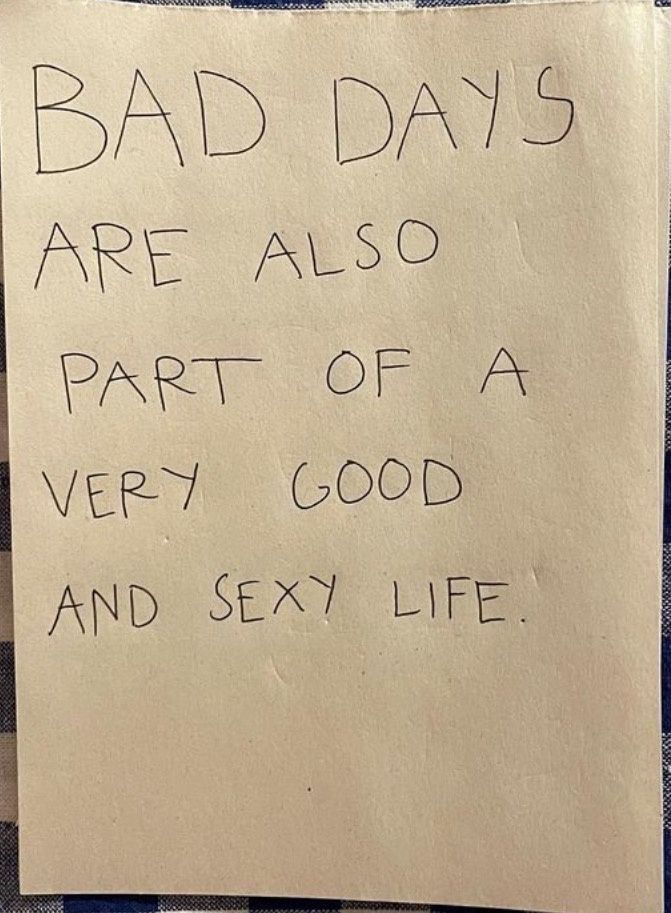 BAD DAYS
ARE ALSO
PART OF A
VERY GOOD
AND SEXY LIFE.